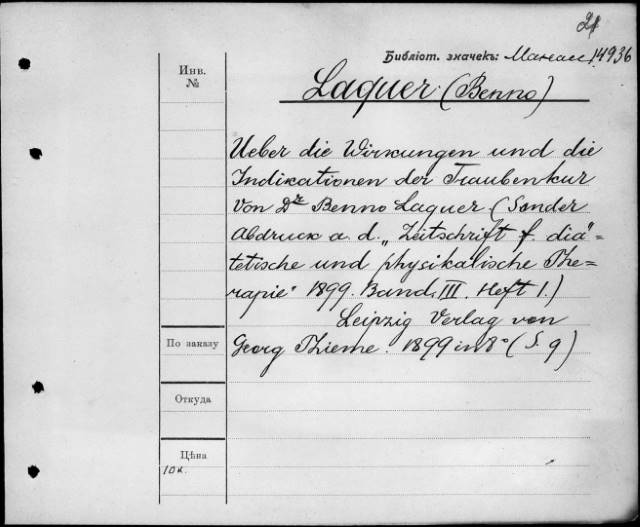 21
Библіот. значекъ: Манасс. 14936
Инв.
№
Laquer (Benno)
Ueber die Wirkungen und die
Indikationen der Traubenkur
von Dr Benno Laquer (Sonder
Abdruck a. d. „Zeitschrift f. diä=
tetische und physikalische The=
rapie" 1899. Band. III. Heft 1.)
Leipzig Verlag von
По заказу
Georg Thieme. 1899 in 8° (S. 9)
Откуда
Цѣна
10к.